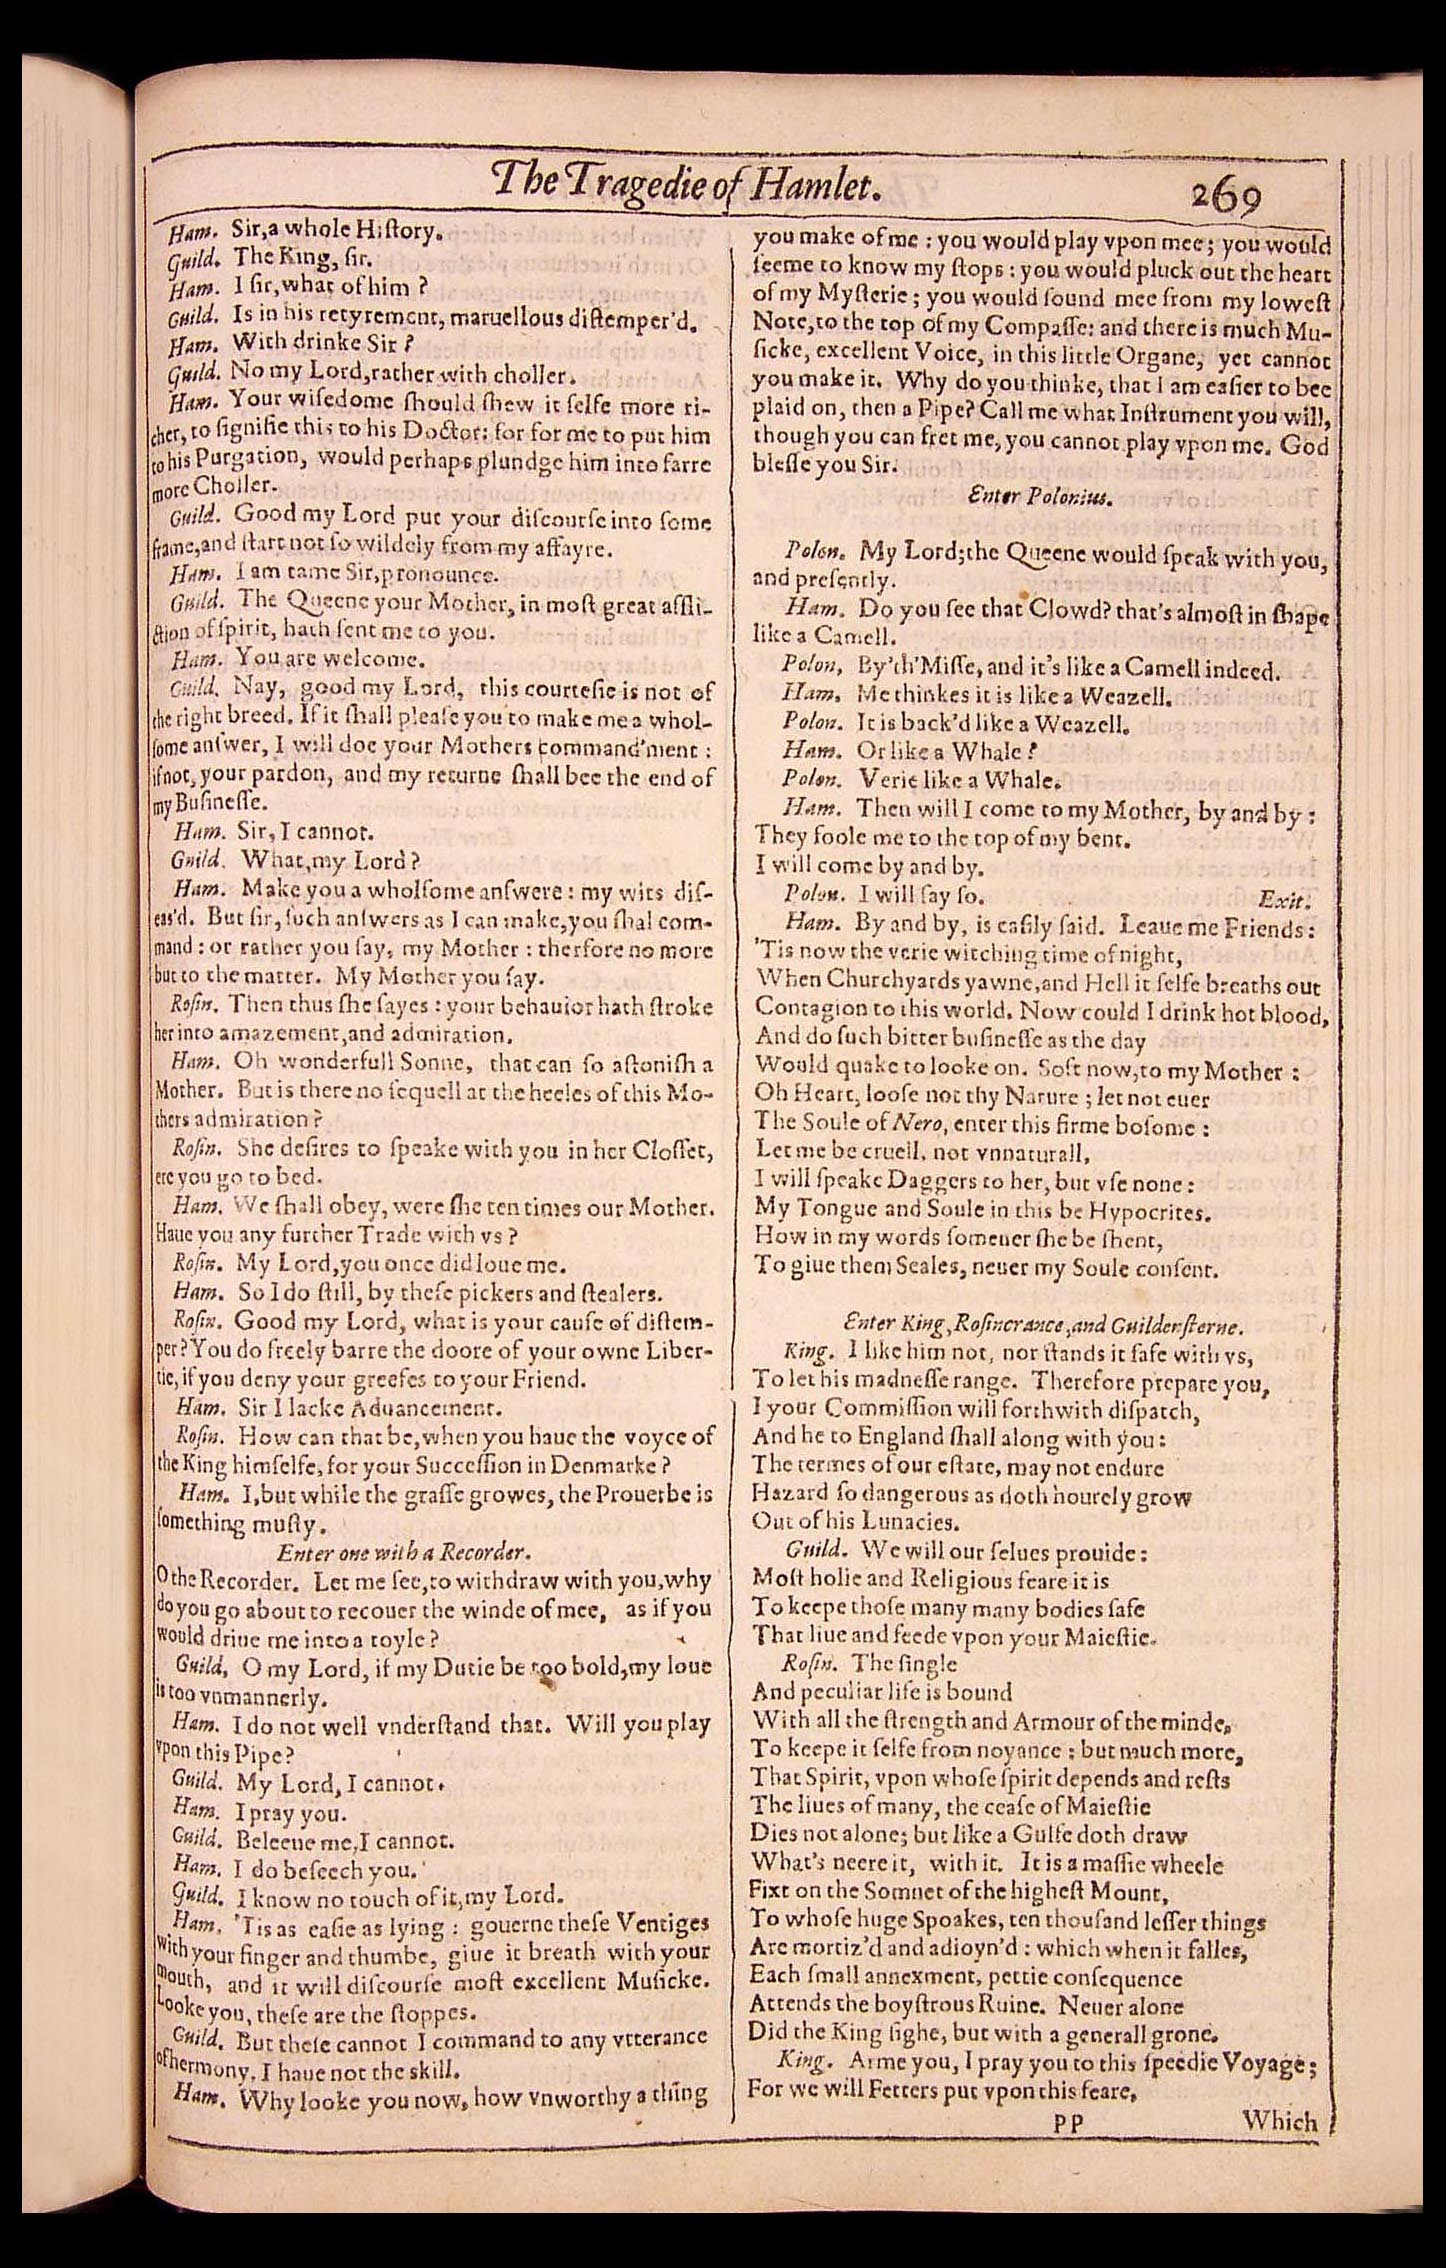 The Tragedie of Hamlet.
269
Ham. Sir,a whole Hiſtory.
Guild. The King, ſir.
Ham. I ſir,what of him ?
Guild. Is in his retyrement, maruellous diſtemper'd.
Ham. With drinke Sir ?
Guild. No my Lord,rather with choller.
Ham. Your wiſedome ſhould ſhew it ſelfe more ri-
cher, to ſignifie this to his Doctor: for for me to put him
to his Purgation, would perhaps plundge him into farre
more Choller.
Guild. Good my Lord put your diſcourſe into ſome
frame,and ſtart not ſo wildely from my affayre.
Ham. I am tame Sir,pronounce.
Guild. The Queene your Mother, in moſt great affli-
ction of ſpirit, hath ſent me to you.
Ham. You are welcome.
Guild. Nay, good my Lord, this courteſie is not of
the right breed. If it ſhall pleaſe you to make me a whol-
ſome anſwer, I will doe your Mothers command'ment :
if not, your pardon, and my returne ſhall bee the end of
my Buſineſſe.
Ham. Sir, I cannot.
Guild. What,my Lord ?
Ham. Make you a wholſome anſwere : my wits diſ-
eas'd. But ſir, ſuch anſwers as I can make,you ſhal com-
mand : or rather you ſay, my Mother : therfore no more
but to the matter. My Mother you ſay.
Roſin. Then thus ſhe ſayes : your behauior hath ſtroke
her into amazement,and admiration.
Ham. Oh wonderfull Sonne, that can ſo aſtoniſh a
Mother. But is there no ſequell at the heeles of this Mo-
thers admiration ?
Roſin. She deſires to ſpeake with you in her Cloſſet,
ere you go to bed.
Ham. We ſhall obey, were ſhe ten times our Mother.
Haue you any further Trade with vs ?
Roſin. My Lord,you once did loue me.
Ham. So I do ſtill, by theſe pickers and ſtealers.
Roſin. Good my Lord, what is your cauſe of diſtem-
per? You do freely barre the doore of your owne Liber-
tie,if you deny your greefes to your Friend.
Ham. Sir I lacke Aduancement.
Roſin. How can that be,when you haue the voyce of
the King himſelfe, for your Succeſſion in Denmarke ?
Ham. I,but while the graſſe growes, the Prouerbe is
ſomething muſty.
Enter one with a Recorder.
O the Recorder. Let me ſee,to withdraw with you,why
do you go about to recouer the winde of mee, as if you
would driue me into a toyle ?
Guild, O my Lord, if my Dutie be too bold,my loue
is too vnmannerly.
Ham. I do not well vnderſtand that. Will you play
vpon this Pipe?
Guild. My Lord, I cannot.
Ham. I pray you.
Guild. Beleeue me,I cannot.
Ham. I do beſeech you.
Guild. I know no touch of it,my Lord.
Ham. 'Tis as eaſie as lying : gouerne theſe Ventiges
with your finger and thumbe, giue it breath with your
mouth, and it will diſcourſe moſt excellent Muſicke.
Looke you, theſe are the ſtoppes.
Guild. But theſe cannot I command to any vtterance
of hermony, I haue not the skill.
Ham. Why looke you now, how vnworthy a thing
you make of me : you would play vpon mee; you would
ſeeme to know my ſtops : you would pluck out the heart
of my Myſterie ; you would ſound mee from my loweſt
Note,to the top of my Compaſſe: and there is much Mu-
ſicke, excellent Voice, in this little Organe, yet cannot
you make it. Why do you thinke, that I am eaſier to bee
plaid on, then a Pipe? Call me what Inſtrument you will,
though you can fret me, you cannot play vpon me. God
bleſſe you Sir.
Enter Polonius.
Polon. My Lord;the Queene would ſpeak with you,
and preſently.
Ham. Do you ſee that Clowd? that's almoſt in ſhape
like a Camell.
Polon, By'th'Miſſe, and it's like a Camell indeed.
Ham. Me thinkes it is like a Weazell.
Polon. It is back'd like a Weazell.
Ham. Or like a Whale ?
Polon. Verie like a Whale.
Ham. Then will I come to my Mother, by and by :
They foole me to the top of my bent.
I will come by and by.
Polon. I will ſay ſo. Exit.
Ham. By and by, is eaſily ſaid. Leaue me Friends:
'Tis now the verie witching time of night,
When Churchyards yawne,and Hell it ſelfe breaths out
Contagion to this world. Now could I drink hot blood,
And do ſuch bitter buſineſſe as the day
Would quake to looke on. Soft now,to my Mother :
Oh Heart, looſe not thy Nature ; let not euer
The Soule of Nero, enter this firme boſome :
Let me be cruell, not vnnaturall,
I will ſpeake Daggers to her, but vſe none :
My Tongue and Soule in this be Hypocrites.
How in my words ſomeuer ſhe be ſhent,
To giue them Seales, neuer my Soule conſent.
Enter King,Roſincrance,and Guilderſterne.
King. I like him not, nor ſtands it ſafe with vs,
To let his madneſſe range. Therefore prepare you,
I your Commiſſion will forthwith diſpatch,
And he to England ſhall along with you :
The termes of our eſtate, may not endure
Hazard ſo dangerous as doth hourely grow
Out of his Lunacies.
Guild. We will our ſelues prouide :
Moſt holie and Religious feare it is
To keepe thoſe many many bodies ſafe
That liue and feede vpon your Maieſtie.
Roſin. The ſingle
And peculiar life is bound
With all the ſtrength and Armour of the minde,
To keepe it ſelfe from noyance : but much more,
That Spirit, vpon whoſe ſpirit depends and reſts
The liues of many, the ceaſe of Maieſtie
Dies not alone; but like a Gulfe doth draw
What's neere it, with it. It is a maſſie wheele
Fixt on the Somnet of the higheſt Mount,
To whoſe huge Spoakes, ten thouſand leſſer things
Are mortiz'd and adioyn'd : which when it falles,
Each ſmall annexment, pettie conſequence
Attends the boyſtrous Ruine. Neuer alone
Did the King ſighe, but with a generall grone.
King. Arme you, I pray you to this ſpeedie Voyage ;
For we will Fetters put vpon this feare,
PP Which